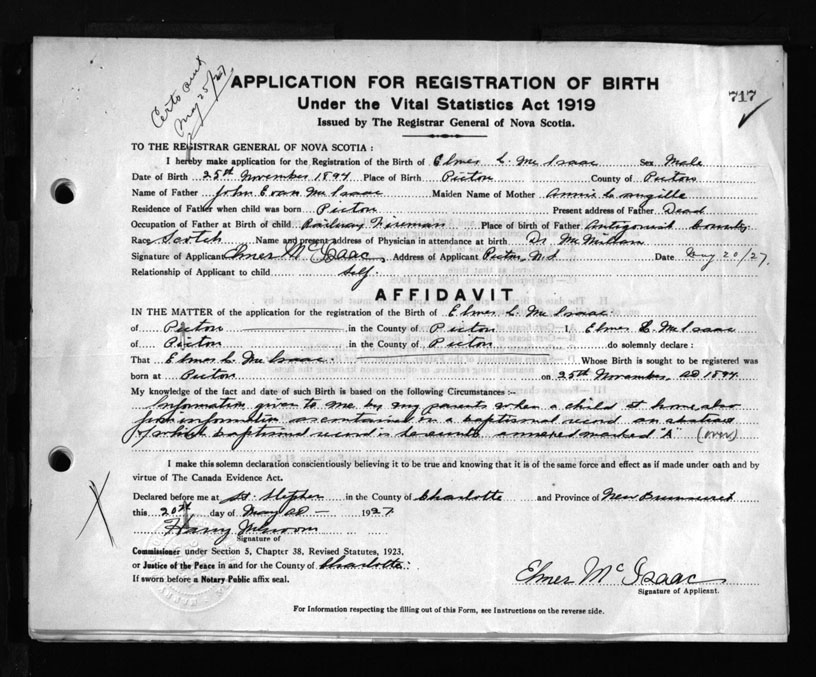 Certo sent
May 25/27.
APPLICATION FOR REGISTRATION OF BIRTH
717
Under the Vital Statistics Act 1919
Issued by The Registrar General of Nova Scotia.
TO THE REGISTRAR GENERAL OF NOVA SCOTIA :
I hereby make application for the Registration of the Birth of Elmer L. McIsaac Sex Male
Date of Birth 25th November 1894 Place of Birth Pictou County of Pictou
Name of Father John Evan McIsaac Maiden Name of Mother Annie Langille
Residence of Father when child was born Pictou Present address of Father Dead
Occupation of Father at Birth of child Railway Fireman Place of birth of Father Antigonish County
Race Scotch Name and present address of Physician in attendance at birth Dr. McMillan
Signature of Applicant Elmer McIsaac Address of Applicant Pictou, N.S. Date May 20/27.
Relationship of Applicant to child Self.
AFFIDAVIT
IN THE MATTER of the application for the registration of the Birth of Elmer L. McIsaac
of Pictou in the County of Pictou I, Elmer L. McIsaac
of Pictou in the County of Pictou do solemnly declare :
That Elmer L. McIsaac. Whose Birth is sought to be registered was
born at Pictou on 25th November, AD 1894.
My knowledge of the fact and date of such Birth is based on the following Circumstances :-
Information given to me by my parents when a child at home, also
from information as contained in a baptismal record an abstract
of which baptismal record is hereunto annexed marked "A"
I make this solemn declaration conscientiously believing it to be true and knowing that it is of the same force and effect as if made under oath and by
virtue of The Canada Evidence Act.
Declared before me at St. Stephen in the County of Charlotte and Province of New Brunswick
this 20th day of May AD - 1927
Harry
Signature of
Commissioner under Section 5, Chapter 38, Revised Statutes, 1923.
or Justice of the Peace in and for the County of Charlotte.
If sworn before a Notary Public affix seal.
Elmer McIsaac
Signature of Applicant.
For Information respecting the filling out of this Form, see Instructions on the reverse side.